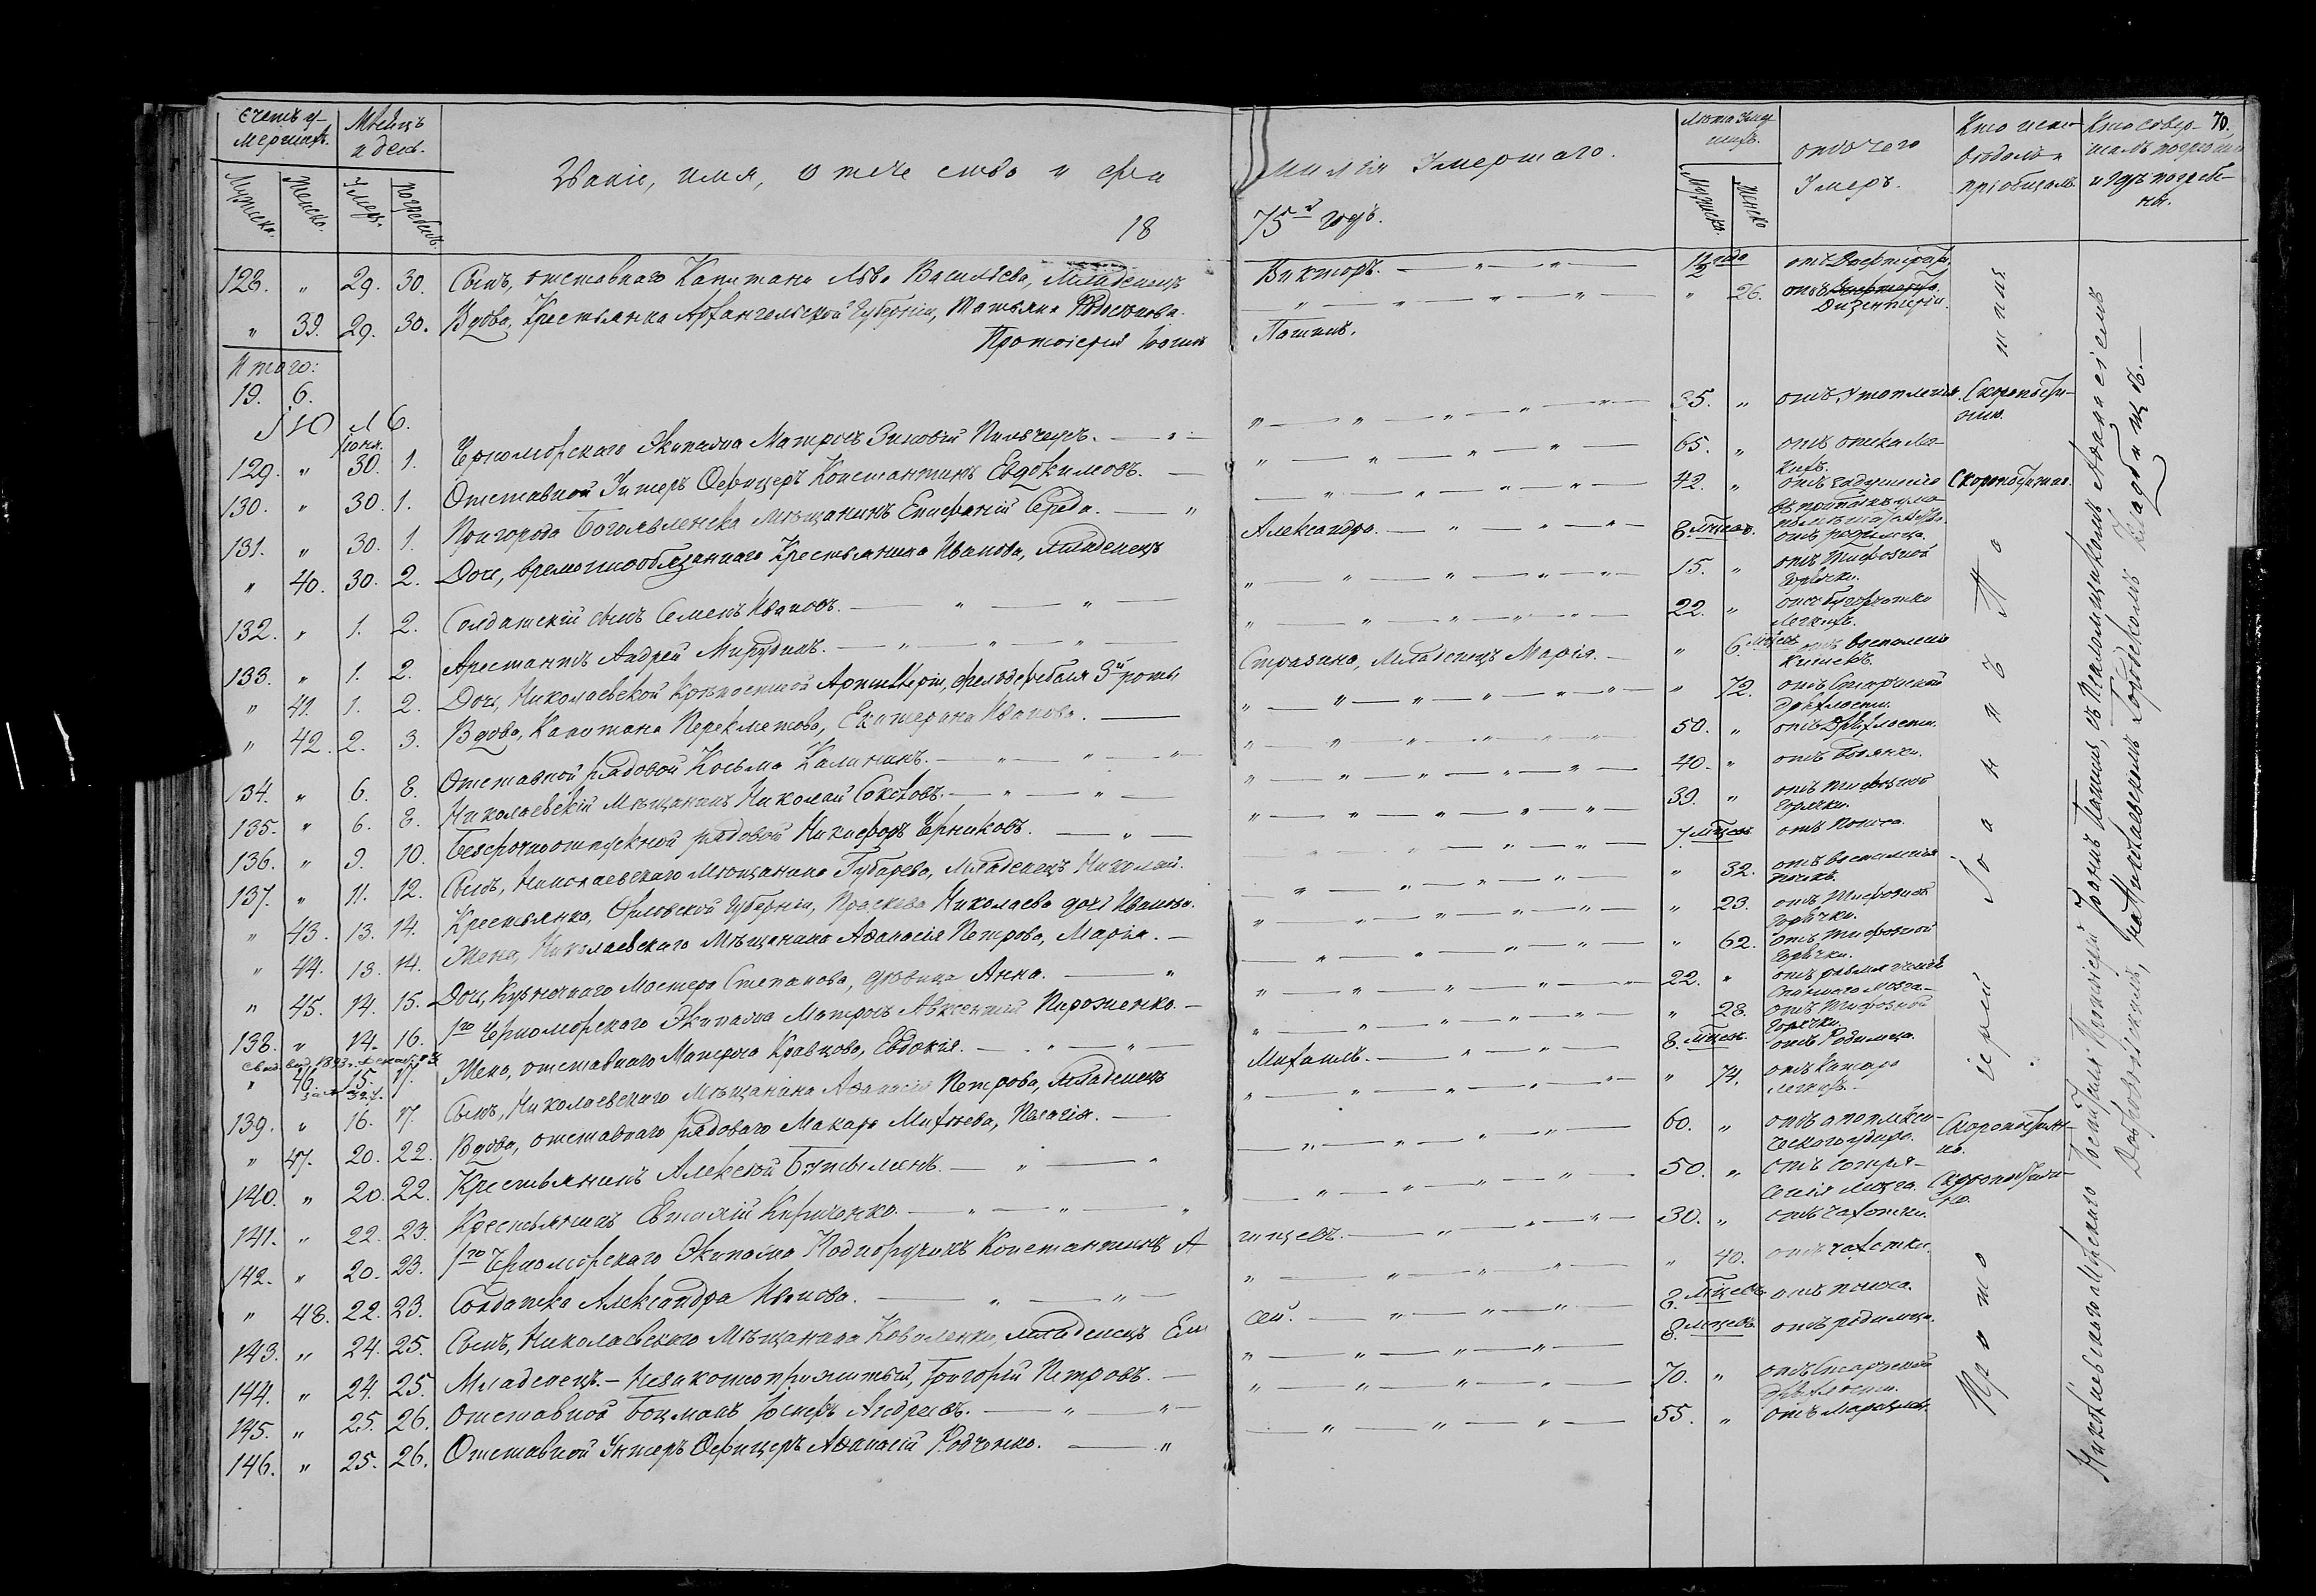 Счетъ у-
мершихъ.
Мѣсяцъ
и день.
Мужеска. Женска. Умеръ. погребенъ.
Званіе, имя, отчество и фа милія Умершаго.
18 75й годъ.
Лѣта Умер-
шихъ.
Мужеска Женска
отъ чего
Умеръ.
Кто испо-
вѣдалъ и
пріобщалъ
Кто совер-
шалъ погребеніе
и гдѣ погребе-
ны.
70.
128. " 29. 30. Сынъ, отставнаго Капитана Льва Васильева, Младенецъ Викторъ. 1 1/2 года отъ Дифтерита
" 39. 29. 30. Вдова, Крестьянка Архангельской Губерніи, Татьяна Родіонова. " 26. отъ Дизентеріи.
Протоіерей Іоаннъ Пашинъ.
Итого:
19. 6.
Іюль.
129. " Іюня 30. 1. Черноморскаго Экипажа Матросъ Зиновій 35. " отъ Утопленія. Скоропостижно.
130. " 30. 1. Отставной Унтеръ Офицеръ Константинъ Евдокимовъ. 65. "
131. " 30. 1. Пригорода Богоявленска Мѣщанинъ Епифаній Середа. 42. " Скоропостижно.
" 40. 30. 2. Дочь, временнообязаннаго Крестьянина Иванова, младенецъ Александра. 8. мѣсяц. отъ родимца.
132. " 1. 2. Солдатскій сынъ Семенъ Ивановъ. 15. " отъ Тифозной Горячки.
133. " 1. 2. Арестантъ Андрей 22. " отъ бугорчатки легкихъ.
" 41. 1. 2. Дочь, Николаевской Крѣпостной Артиллеріи, фельдфебеля 3й роты Страхина, Младенецъ Марія. " 6. мѣсяц. отъ воспаленія кишекъ.
" 42. 2. 3. Вдова, Капитана Перекметова, Екатерина Иванова. " 72. отъ Старческой дряхлости.
134. " 6. 8. Отставной рядовой Косьма Калининъ. 50. " отъ Дряхлости.
135. " 6. 8. Николаевскій Мѣщанинъ Николай Соколовъ. 40. " отъ водянки.
136. " 9. 10. Безсрочноотпускной рядовой Никифоръ Черниковъ. 39. " отъ тифозной горячки.
137. " 11. 12. Сынъ, Николаевскаго Мѣщанина Губарева, младенецъ Николай. 7. мѣсяц. отъ поноса.
" 43. 13. 14. Крестьянка, Орловской Губерніи, Праскева Николаева дочь Иванова. " 32. отъ воспаленія почекъ.
" 44. 13. 14. Жена, Николаевскаго Мѣщанина Аѳанасія Петрова, Марія. " 23. отъ Тифозной Горячки.
" 45. 14. 15. Дочь, Кузнечнаго Мастера Степанова, дѣвица Анна. " 62. отъ Тифозной Горячки.
138. " 14. 16. 1го Черноморскаго Экипажа Матросъ Авксентій Пироженко. 22. " отъ размягченія Спиннаго Мозга.
" 46. 15. 17. Жена, отставнаго Матроса Кравцова, Евдокія. " 28. отъ Тифозной Горячки.
139. " 16. 17. Сынъ, Николаевскаго Мѣщанина Аѳанасія Петрова, младенецъ Михаилъ. 8. мѣсяц. отъ Родимца.
" 47. 20. 22. Вдова, отставнаго рядоваго Макара Михѣева, Пелагія. " 74. отъ Катара легкихъ.
140. " 20. 22. Крестьянинъ Алексѣй 60. " отъ апоплексическаго удара. Скоропостижно.
141. " 22. 23. Крестьянинъ Евтихій Кириченко. 50. " отъ сотрясенія мозга. Скоропостижно.
142. " 20. 23. 1го Черноморскаго Экипажа Подпоручикъ Константинъ 30. " отъ чахотки.
" 48. 22. 23. Солдатка Александра Иванова. " 40. отъ чахотки.
143. " 24. 25. Сынъ, Николаевскаго Мѣщанина Коваленки, младенецъ Ели сей. 8. мѣсяцевъ отъ поноса.
144. " 24. 25. Младенецъ - Незаконноприжитый, Григорій Петровъ. 8 мѣсяцевъ. отъ родимца.
145. " 25. 26. Отставной Боцманъ Іосифъ Андреевъ. 70. " отъ Старческой дряхлости.
146. " 25. 26. Отставной Унтеръ Офицеръ Аѳанасій Родченко. 55. " отъ маразма.
Протоіерей Іоаннъ Пашинъ
Николаевскаго Морскаго Госпиталя Протоіерей Іоаннъ Пашинъ, съ Псаломщикомъ Аѳанасіемъ
Доброволскимъ, на Николаевскомъ Городскомъ кладбищѣ.